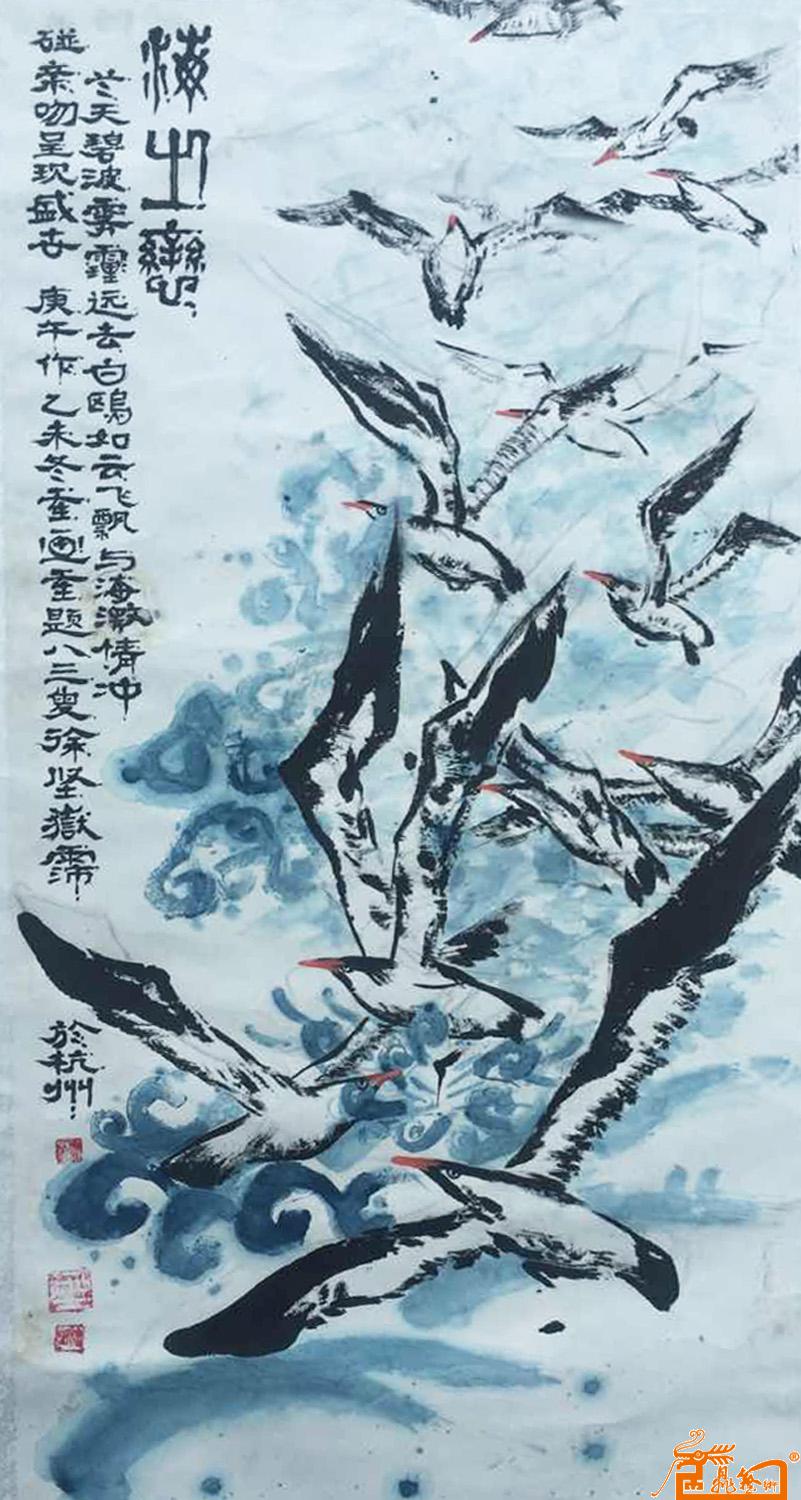 海之戀
兰天碧波雾霾远去白鸥如云飞飘与海激情冲
碰亲吻呈现盛世 庚午作乙未冬重画重题八三叟徐坚
於杭州